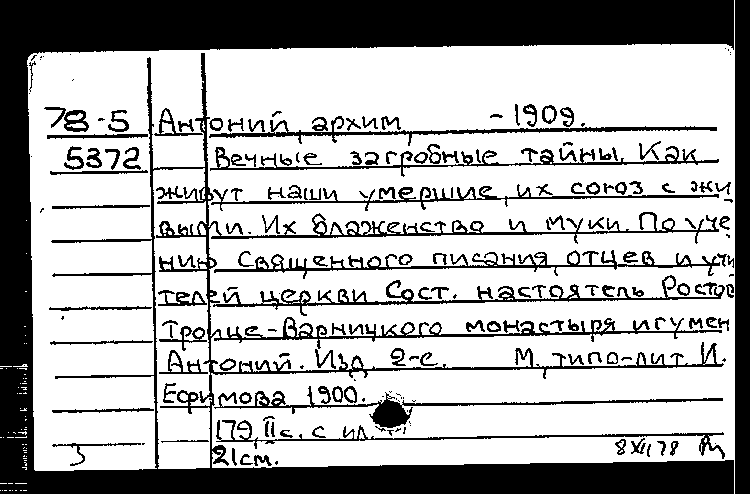 78-5 Антоний, архим, -1909.
5372 Вечные загробные тайны. Как
живут наши умершие, их союз с жи
выми. Их блаженство и муки. По уче
нию Священного писания, отцев и учи
телей церкви Сост. настоятель Ростов
Троице-Варницкого монастыря игумен
Антоний. Изд. 2-е. М., типо-лит. И.
Ефимова, 1900.
179, II с. с ил.
3 21см. 8 XII 78